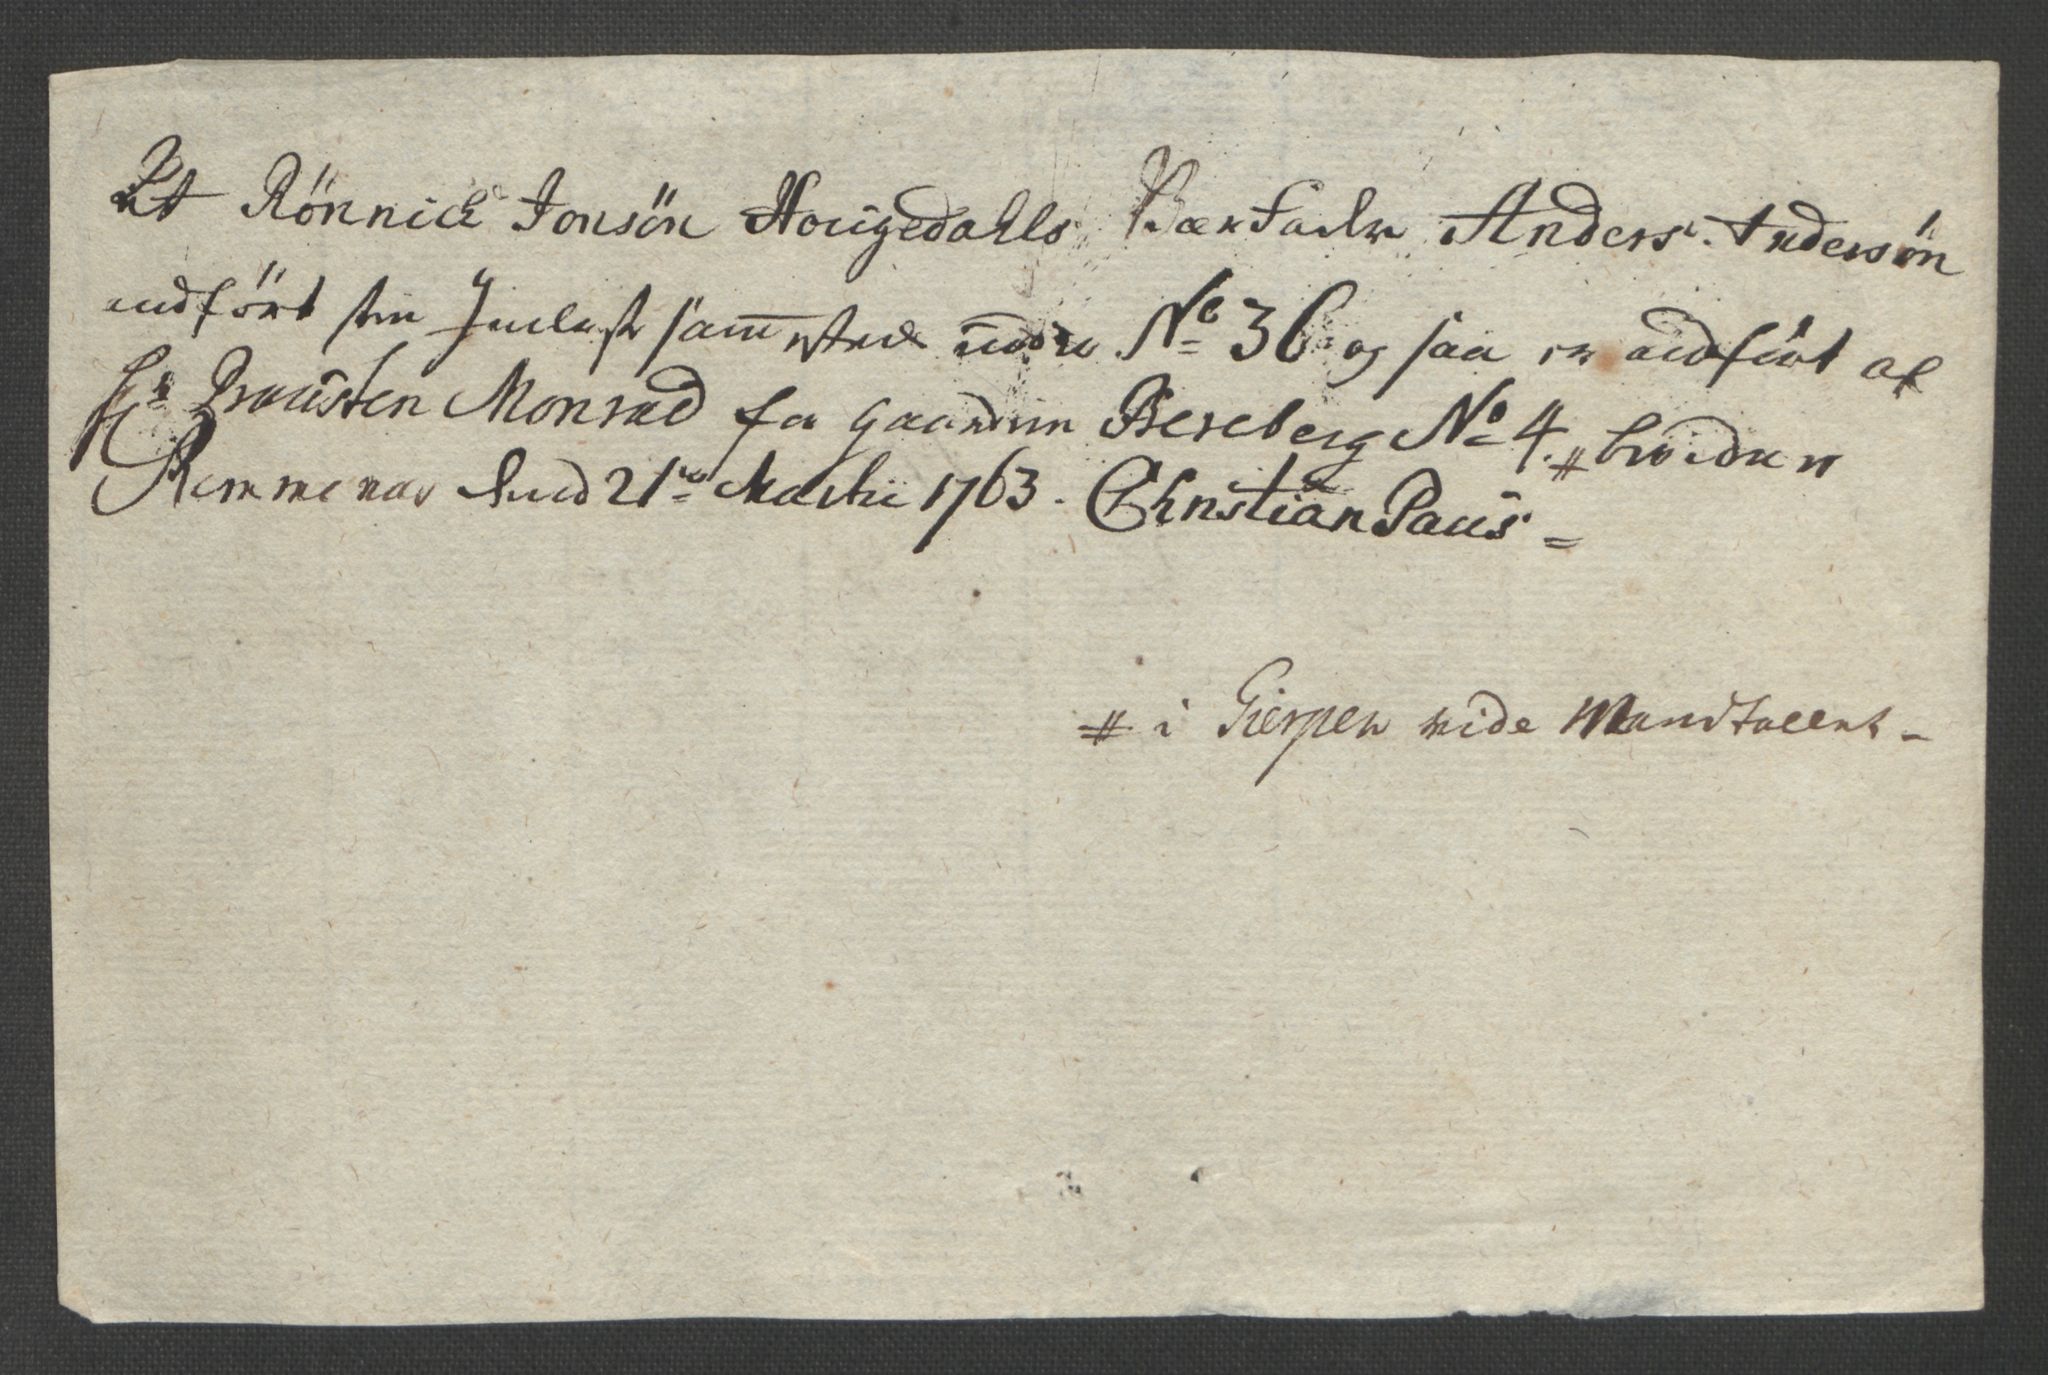 At Rönnich Jonsön Hougedahls Værfader Anders Andersön
andfört sin Inderst sammested under No 36 og saa er andfört af
Hr Prousten Monrad for gaarden Bereberg No 4 # bevidner
Remmenas d 21de Martii 1763. Christian Paus =
# i Gierpen vide Mandtallet -